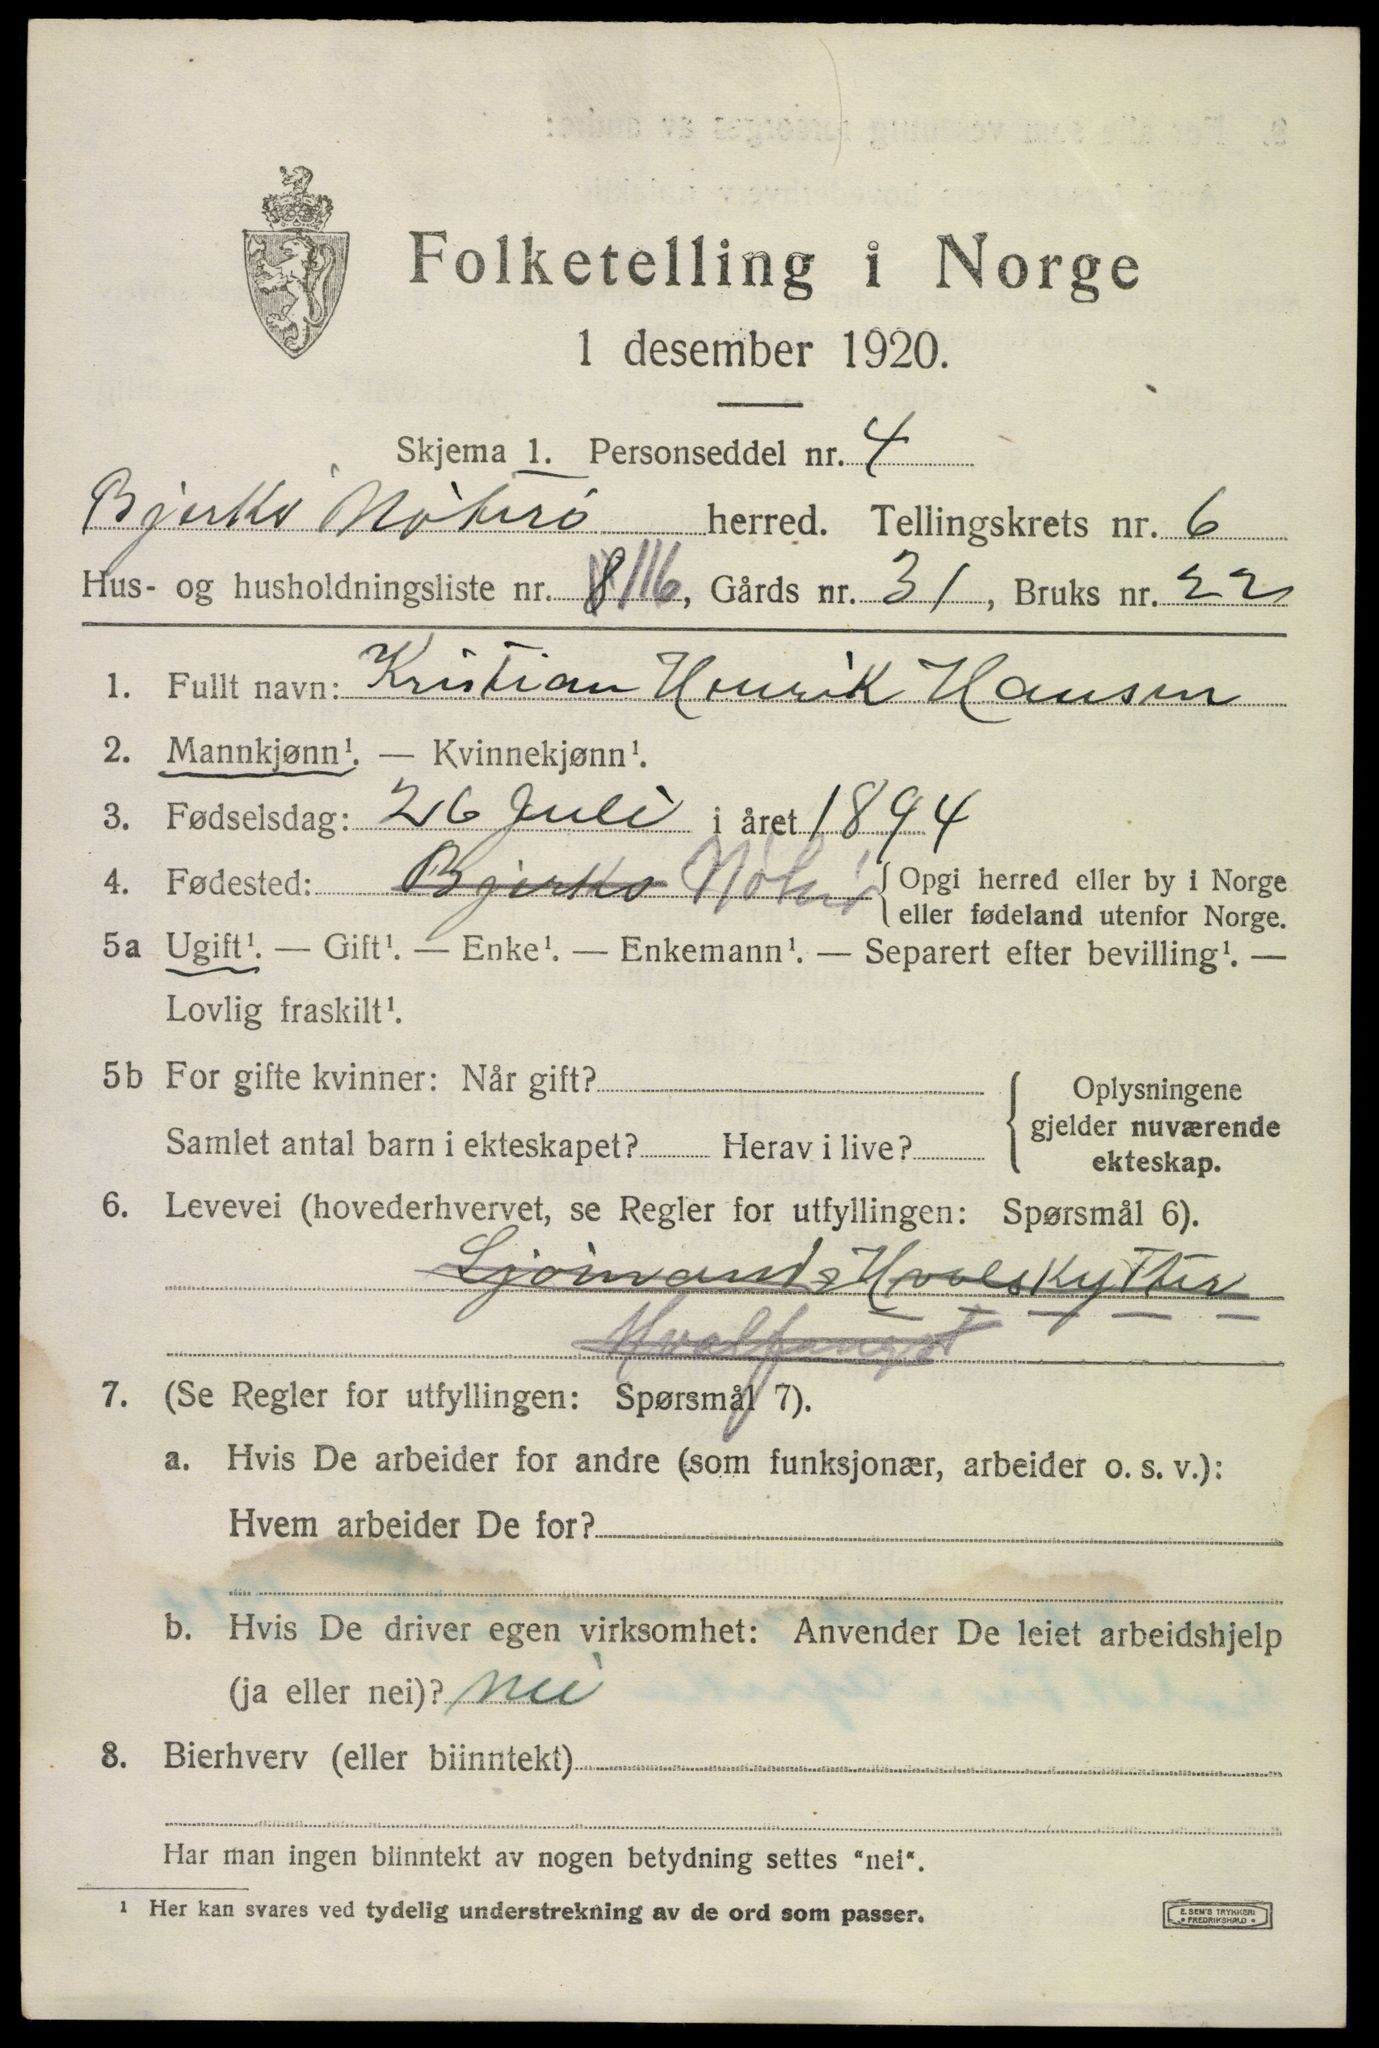 Folketelling i Norge
1 desember 1920.
Skjema 1. Personseddel nr. 4
Bjerkø Nøterø herred. Tellingskrets nr. 6
Hus- og husholdningsliste nr. 116, Gårds nr. 31, Bruks nr. 22
1. Fullt navn: Kristian Henrik Hansen
2. Mannkjønn¹. — Kvinnekjønn¹.
3. Fødselsdag: 26 Juli i året 1894
4. Fødested: Bjerkø Nøterø {Opgi herred eller by i Norge
eller fødeland utenfor Norge.
5a Ugift¹. — Gift¹. — Enke¹. — Enkemann¹. — Separert efter bevilling¹. —
Lovlig fraskilt¹.
5b For gifte kvinner: Når gift?
Samlet antal barn i ekteskapet? Herav i live?
Oplysningene
gjelder nuværende
ekteskap.
6. Levevei (hovederhvervet, se Regler for utfyllingen: Spørsmål 6).
Sjømand Hvalskytter
Hvalfangst
7. (Se Regler for utfyllingen: Spørsmål 7).
a. Hvis De arbeider for andre (som funksjonær, arbeider o. s. v.):
Hvem arbeider De for?
b. Hvis De driver egen virksomhet: Anvender De leiet arbeidshjelp
(ja eller nei)? Nei
8. Bierhverv (eller biinntekt)
Har man ingen biinntekt av nogen betydning settes "nei".
¹ Her kan svares ved tydelig understrekning av de ord som passer.
E. SEM'S TRYKKERI
FREDRIKSHALD